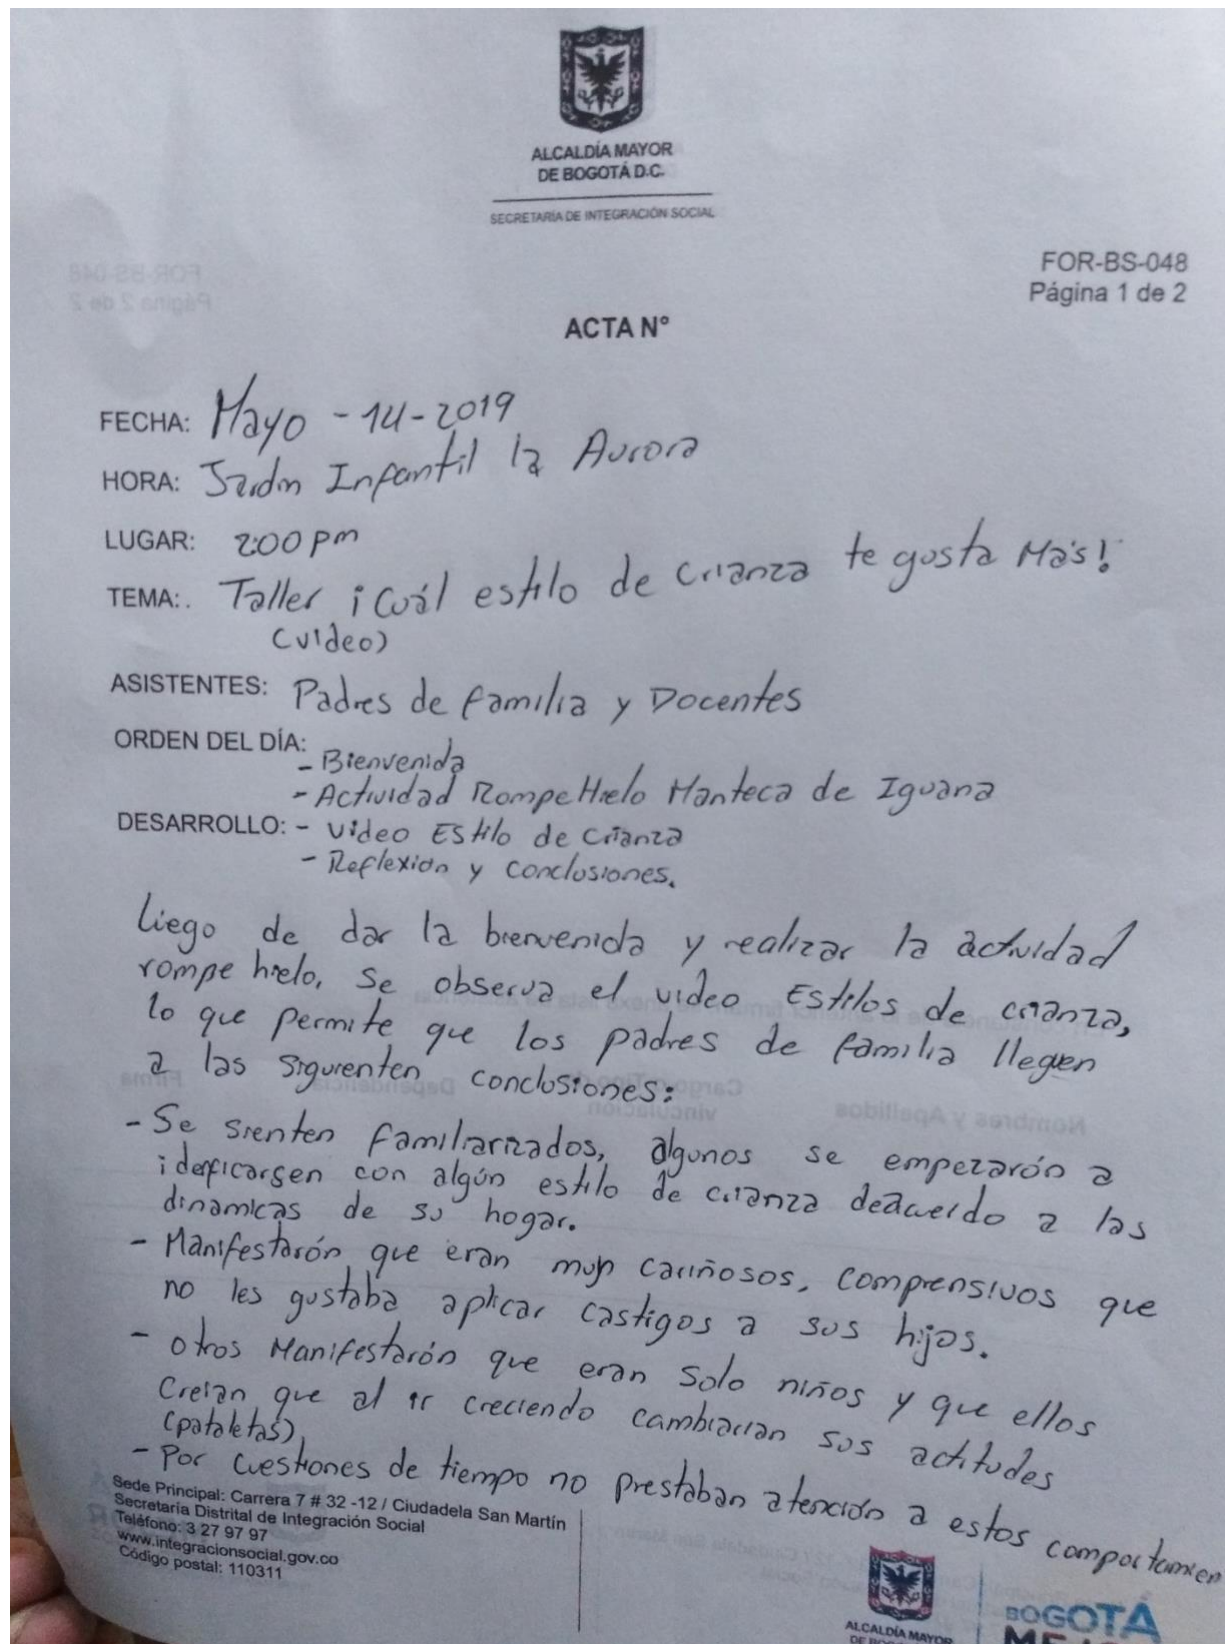 ALCALDÍA MAYOR
DE BOGOTÁ D.C.
SECRETARÍA DE INTEGRACIÓN SOCIAL
FOR-BS-048
Página 1 de 2
ACTA N°
FECHA: Mayo - 14 - 2019
HORA: Jardin Infantil la Aurora
LUGAR: 2:00 pm
TEMA:. Taller ¡Cuál estilo de crianza te gusta Más!
(video)
ASISTENTES: Padres de familia y Docentes
ORDEN DEL DÍA:
- Bienvenida
- Actividad Rompe Hielo Manteca de Iguana
DESARROLLO: - Video Estilo de Crianza
- Reflexion y conclusiones.
Liego de dar la bienvenida y realizar la actividad
rompe hielo, se observa el video Estilos de crianza,
lo que permite que los padres de familia llegen
a las siguienten conclusiones:
- Se sienten familiarizados, algunos se empezarón a
ideficarsen con algún estilo de crianza deacuerdo a las
dinamicas de su hogar.
- Manifestarón que eran muy cariñosos, comprensivos que
no les gustaba aplicar castigos a sus hijos.
- otros Manifestarón que eran solo niños y que ellos
Creian que al ir creciendo cambiarian sus actitudes
(pataletas)
- Por cuestiones de tiempo no prestaban atención a estos comportamien
Sede Principal: Carrera 7 # 32 -12 / Ciudadela San Martín
Secretaría Distrital de Integración Social
Teléfono: 3 27 97 97
www.integracionsocial.gov.co
Código postal: 110311
ALCALDÍA MAYOR
BOGOTÁ